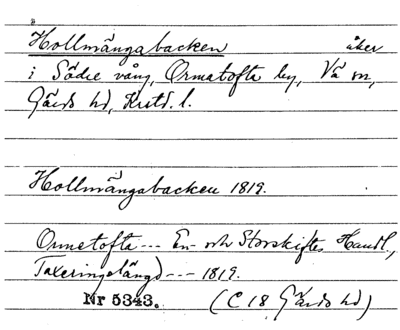 Hollmängabacken åker
i Södre vång, Ormatofta by, Vä sn,
Gärds hd, Krist. l.
Hollmängabacken 1819.
Ormetofta --- En- och Storskiftes Handl.,
Taxeringslängd --- 1819.
Nr 5343. (C 18 Gärds hd)